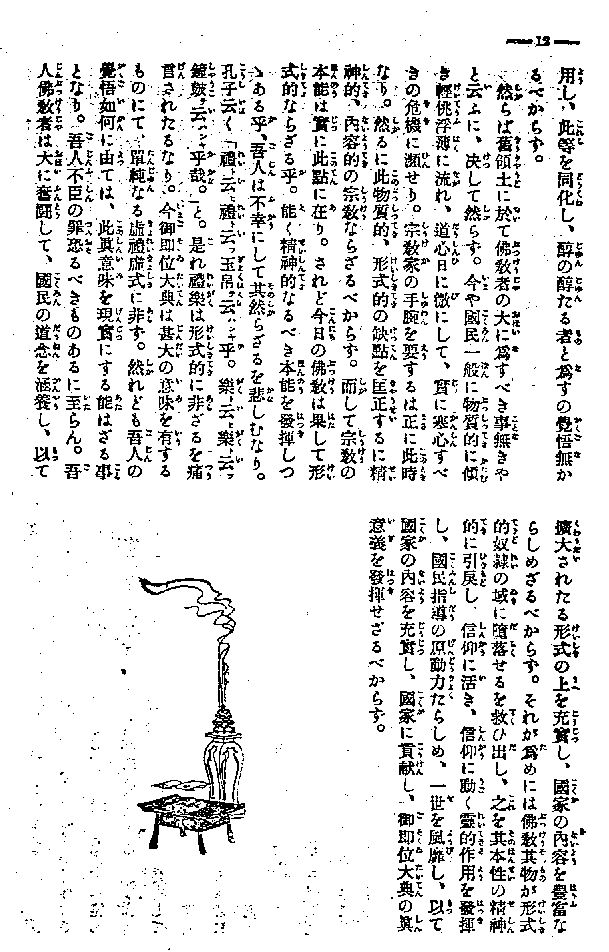 — 12 —
用し、此等を同化し、醇の醇たる者と爲すの覺悟無か
るべからず。
然らば舊領土に於て佛敎者の大に爲すべき事無きや
と云ふに、決して然らず。今や國民一般に物質的に傾
き輕佻浮薄に流れ、道心日に微にして、寳に寒心すべ
きの危機に瀕せり。宗敎家の手腕を要するは正に此時
なり。然るに此物質的、形式的の缺點を匡正するに精
神的、內容的の宗敎ならざるべからず。而して宗敎の
本能は實に此點に在り。されど今日の佛敎は果して形
式的ならざる乎。能く精神的なるべき本能を發揮しつ
ゝある乎、吾人は不幸にして其然らざるを悲しむなり。
孔子云く「禮と云ひ禮と云ふ玉帛と云はんや乎。樂と云ひ樂と云ふ
鐘鼓と云はんや乎哉。」と。是れ禮樂は形式的に非ざるを痛
言されたるなり。今御即位大典は甚大の意味を有する
ものにて、單純なる虛禮虛式に非ず。然れども吾人の
覺悟如何に由ては、此眞意味を現實にする能はざる事
となり。吾人不臣の罪恐るべきものあるに至らん。吾
人佛敎者は大に奮鬪して、國民の道念を涵養し、以て
擴大されたる形式の上を充實し、國家の內容を豐富な
らしめざるべからず。それが爲めには佛敎其物が形式
的奴隸の域に墮落せるを救ひ出し、之を其本性の精神
的に引戾し、信仰に活き、信仰に動く靈的作用を發揮
し、國民指導の原動力たらしめ、一世を風靡し、以て
國家の內容を充實し、國家に貢献し、御即位大典の眞
意義を發揮せざるべからず。